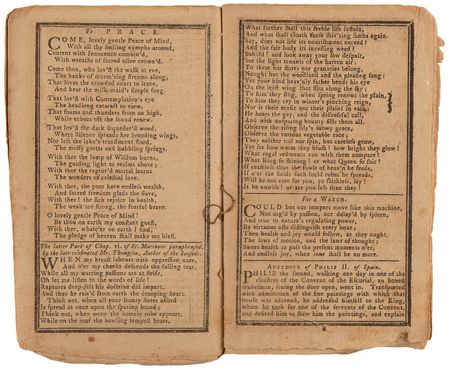 To PEACE.
COME, lovely gentle Peace of Mind,
With all thy smiling nymphs around,
Content with Innocence combin'd,
With wreaths of sacred olive crown'd.
Come thou, who lov'd the walk at eve,
The banks of murm'ring streams along,
That loves the crowded court to leave,
And hear the milk-maid's simple song.
That lov'd with Contemplation's eye
The headlong cataract to view,
That foams and thunders from on high,
While echoes oft the sound renew.
That lov'd the dark sequester'd wood,
Where Silence spreads her brooding wings,
Nor less the lake's translucent flood,
The mossy grots and bubbling springs.
With thee the lamp of Wisdom burns,
The guiding light to realms above;
With thee the raptur'd mortal learns
The wonders of celestial love.
With thee, the poor have endless wealth,
And sacred freedom glads the slave,
With thee! the sick rejoice in health,
The weak are strong, the fearful brave.
O lovely gentle Peace of Mind!
Be thou on earth my constant guest,
With thee, whate'er on earth I find,
The pledge of heaven shall make me blest.
The latter Part of Chap. vi. of St. Matthew paraphrased,
by the late celebrated Mr. Thompson, Author of the Seasons.
WHEN my breast labours with oppressive care,
And o'er my cheeks descends the falling tear,
While all my warring passions are at strife,
Oh let me listen to the words of life!
Raptures deep-felt his doctrine did impart,
And thus he rais'd from earth the drooping heart:
Think not, when all your scanty stores afford
Is spread at once upon the sparing board;
Think not, when worn the homely robe appears,
While on the roof the howling tempest bears,
What farther shall this feeble life sustain,
And what shall cloath these shiv'ring limbs again.
Say, does not life its nourishment exceed?
And the fair body its investing weed?
Behold! and look away your low despair,
See the light tenants of the barren air:
To them nor stores nor granaries belong,
Nought but the woodland and the pleasing song:
Yet your kind heav'nly father bends his eye
On the least wing that flits along the sky;
To him they sing, when spring renews the plain,
To him they cry in winter's pinching reign,
Nor is their music nor their plaint in vain:
He hears the gay, and the distressful call,
And with unsparing bounty fills them all.
Observe the rising lily's snowy grace,
Observe the various vegetable race;
They neither toil nor spin, but careless grow,
Yet see how warm they blush! how bright they glow!
What regal vestments can with them compare!
What King so shining! or what Queen so fair!
If ceaseless thus the fowls of heav'n he feeds,
If o'er the fields such lucid robes he spreads,
Will he not care for you, ye faithless, say?
Is he unwise! or are you less than they!
For a WATCH.
COULD but our tempers move like this machine,
Not urg'd by passion, nor delay'd by spleen,
And true to nature's regulating power,
By virtuous acts distinguish every hour;
Then health and joy would follow, as they ought,
The laws of motion, and the laws of thought;
Sweet health to pass the present moments o'er,
And endless joy, when time shall be no more.
ANECDOTE of PHILIP II. of Spain.
PHILIP the second, walking one day in one of the
cloisters of the Convent of the Escurial, an honest
tradesman, seeing the door open, went in. Transported
with admiration of the fine paintings with which that
house was adorned, he addressed himself to the King,
whom he took for one of the servants of the Convent,
and desired him to shew him the paintings, and explain
B